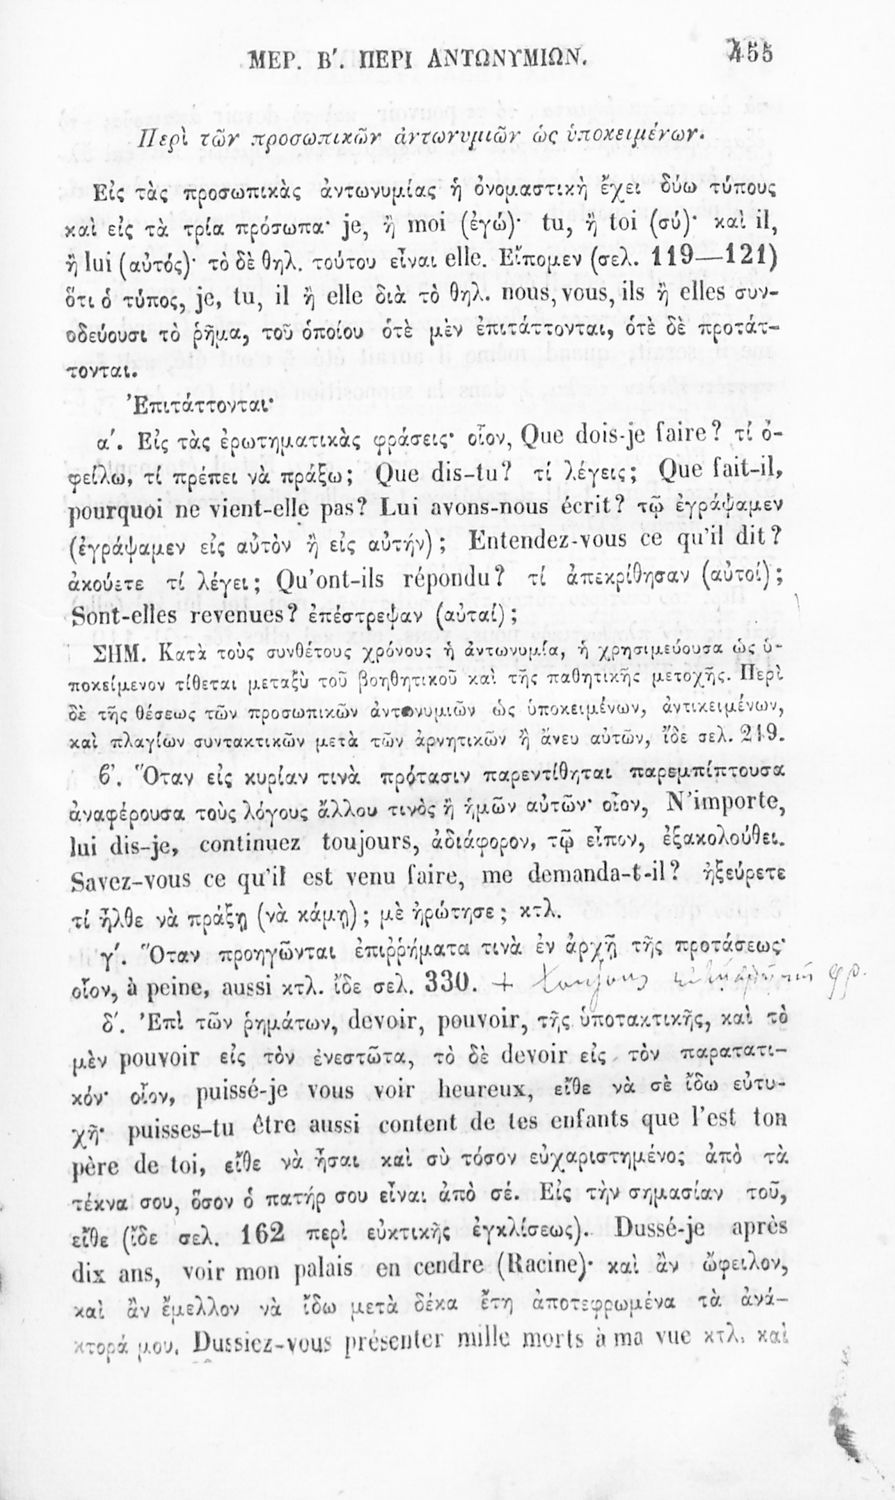 ΜΕΡ. Β΄. ΠΕΡΙ ΑΝΤΩΝΥΜΙΩΝ. 455
Περὶ τῶν προσωπικῶν ἀντωνυμιῶν ὡς ὑποκειμένων.
Εἰς τὰς προσωπικὰς ἀντωνυμίας ἡ ὀνομαστικὴ ἔχει δύω τύπους
καὶ εἰς τὰ τρία πρόσωπα· je, ἢ moi (ἐγώ)· tu, ἢ toi (σύ)· καὶ il,
ἢ lui (αὐτός)· τὸ δὲ θηλ. τούτου εἶναι elle. Εἴπομεν (σελ. 119—121)
ὅτι ὁ τύπος, je, tu, il ἢ elle διὰ τὸ θηλ. nous, vous, ils ἢ elles συν-
οδεύουσι τὸ ῥῆμα, τοῦ ὁποίου ὁτὲ μὲν ἐπιτάττονται, ὁτὲ δὲ προτάτ-
τονται.
Ἐπιτάττονται·
α΄. Εἰς τὰς ἐρωτηματικὰς φράσεις· οἷον, Que dois-je faire? τί ὀ-
φείλω, τί πρέπει νὰ πράξω; Que dis-tu? τί λέγεις; Que fait-il,
pourquoi ne vient-elle pas? Lui avons-nous écrit? τῷ ἐγράψαμεν
(ἐγράψαμεν εἰς αὐτὸν ἢ εἰς αὐτήν); Entendez-vous ce qu'il dit?
ἀκούετε τί λέγει; Qu'ont-ils répondu? τί ἀπεκρίθησαν (αὐτοί);
Sont-elles revenues? ἐπέστρεψαν (αὐταί);
ΣΗΜ. Κατὰ τοὺς συνθέτους χρόνους ἡ ἀντωνυμία, ἡ χρησιμεύουσα ὡς ὑ-
ποκείμενον τίθεται μεταξὺ τοῦ βοηθητικοῦ καὶ τῆς παθητικῆς μετοχῆς. Περὶ
δὲ τῆς θέσεως τῶν προσωπικῶν ἀντωνυμιῶν ὡς ὑποκειμένων, ἀντικειμένων,
καὶ πλαγίων συντακτικῶν μετὰ τῶν ἀρνητικῶν ἢ ἄνευ αὐτῶν, ἴδε σελ. 249.
ϐ΄. Ὅταν εἰς κυρίαν τινὰ πρότασιν παρεντίθηται παρεμπίπτουσα
ἀναφέρουσα τοὺς λόγους ἄλλου τινὸς ἢ ἡμῶν αὐτῶν· οἷον, N'importe,
lui dis-je, continuez toujours, ἀδιάφορον, τῷ εἶπον, ἐξακολούθει.
Savez-vous ce qu'il est venu faire, me demanda-t-il? ἠξεύρετε
τί ἦλθε νὰ πράξῃ (νὰ κάμῃ); μὲ ἠρώτησε; κτλ.
γ΄. Ὅταν προηγῶνται ἐπιῤῥήματα τινὰ ἐν ἀρχῇ τῆς προτάσεως·
οἷον, à peine, aussi κτλ. ἴδε σελ. 330. +
δ΄. Ἐπὶ τῶν ῥημάτων, devoir, pouvoir, τῆς ὑποτακτικῆς, καὶ τὸ
μὲν pouvoir εἰς τὸν ἐνεστῶτα, τὸ δὲ devoir εἰς τὸν παρατατι-
κόν· οἷον, puissé-je vous voir heureux, εἴθε νὰ σὲ ἴδω εὐτυ-
χῆ· puisses-tu être aussi content de tes enfants que l'est ton
père de toi, εἴθε νὰ ἦσαι καὶ σὺ τόσον εὐχαριστημένος ἀπὸ τὰ
τέκνα σου, ὅσον ὁ πατήρ σου εἶναι ἀπὸ σέ. Εἰς τὴν σημασίαν τοῦ,
εἴθε (ἴδε σελ. 162 περὶ εὐκτικῆς ἐγκλίσεως). Dussé-je après
dix ans, voir mon palais en cendre (Racine)· καὶ ἂν ὤφειλον,
καὶ ἂν ἔμελλον νὰ ἴδω μετὰ δέκα ἔτη ἀποτεφρωμένα τὰ ἀνά-
κτορά μου. Dussiez-vous présenter mille morts à ma vue κτλ. καὶ